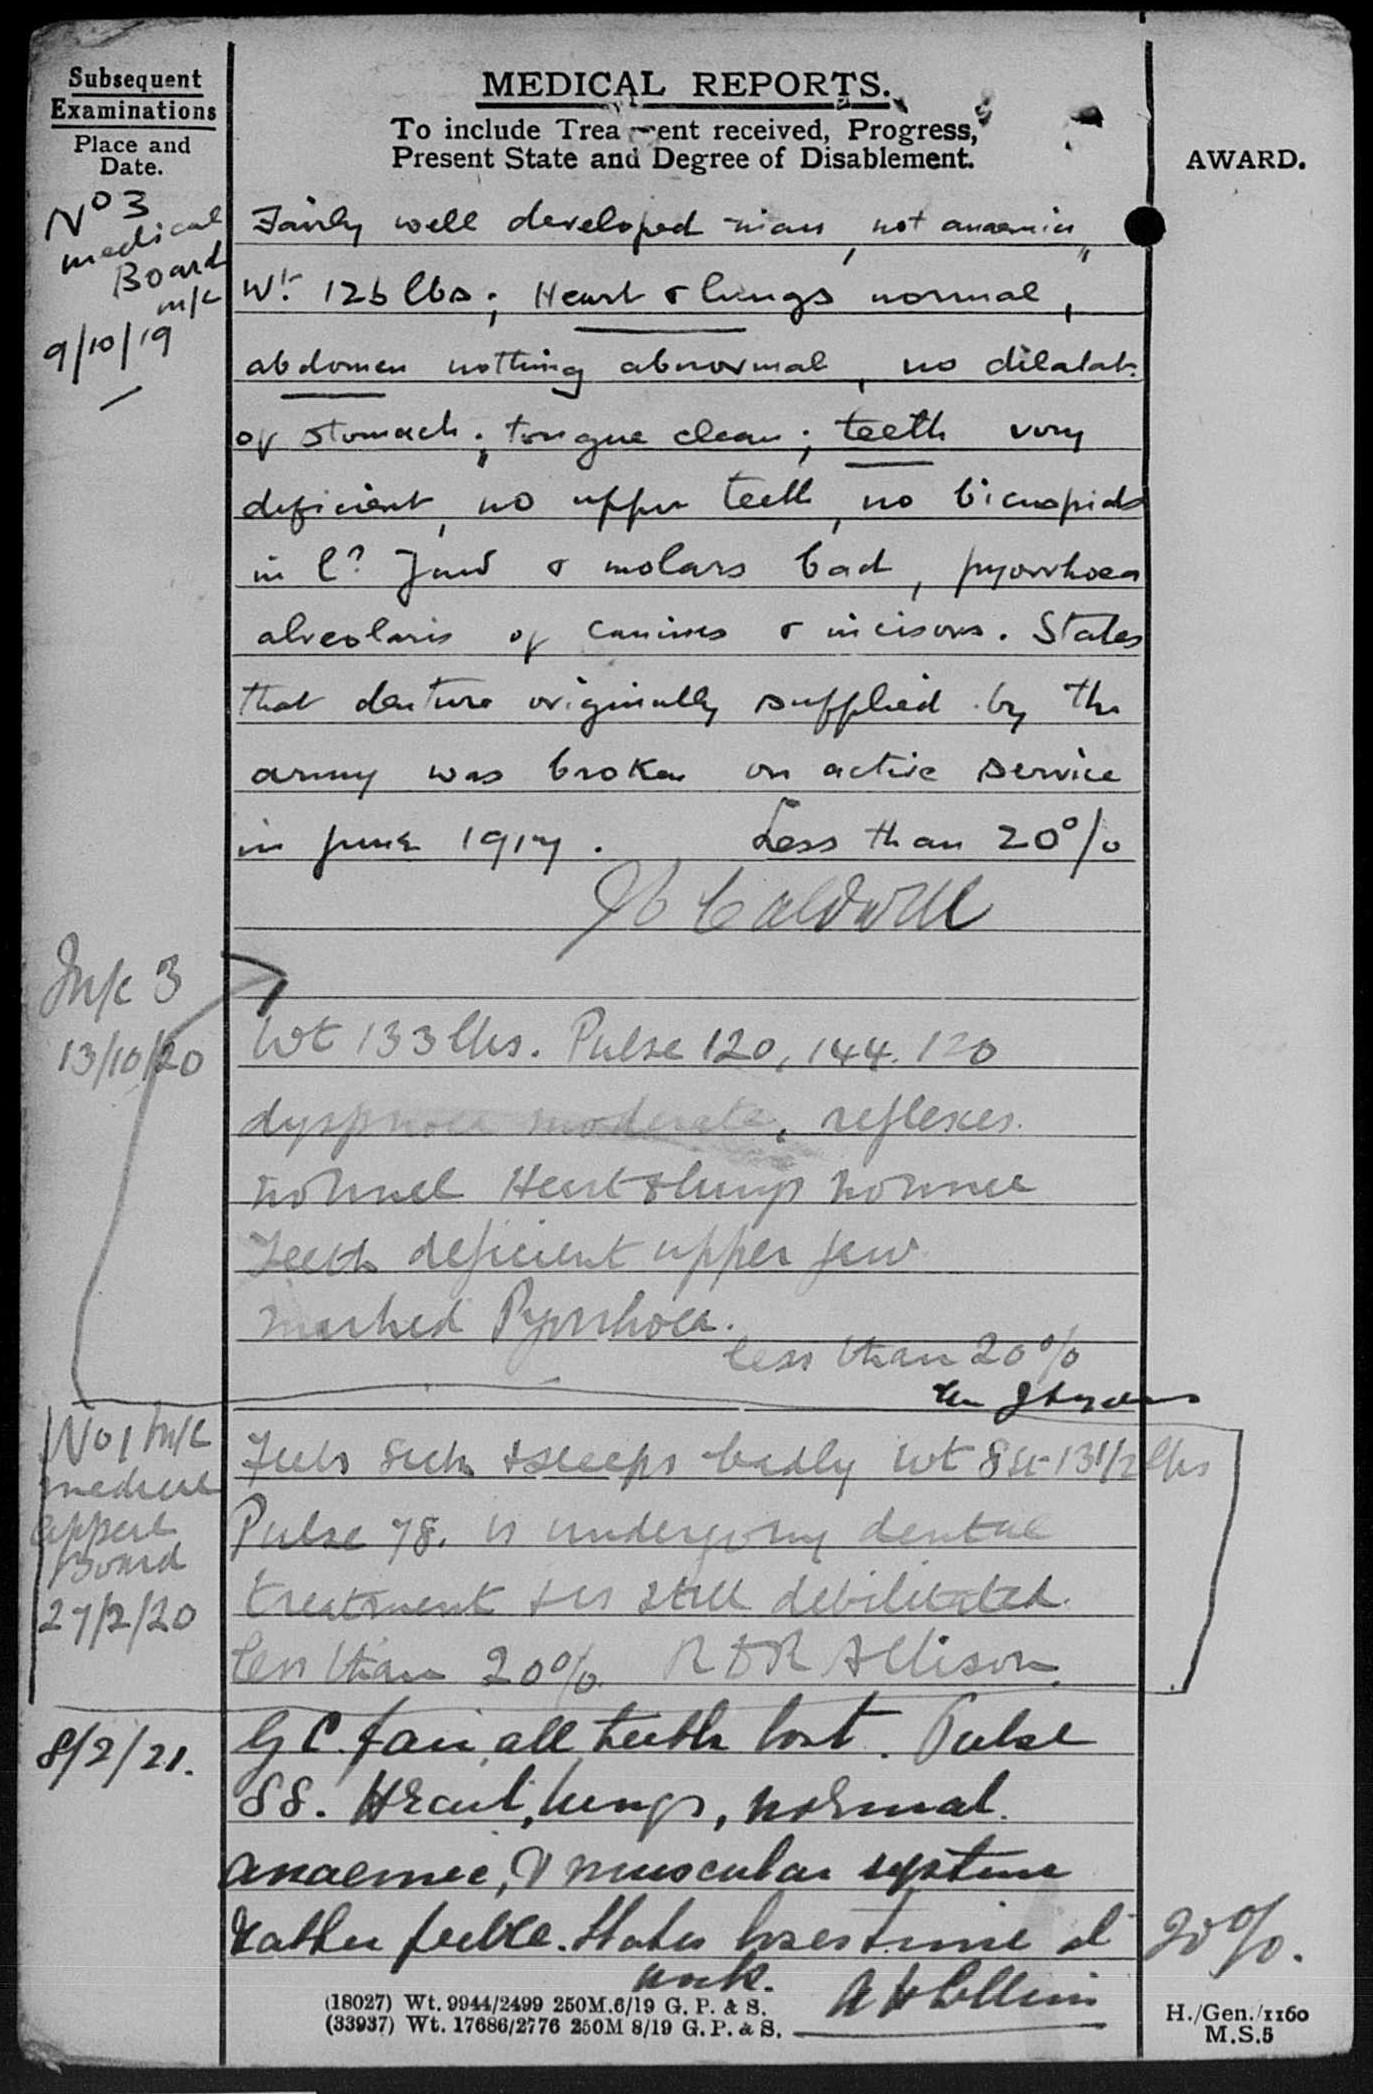 Subsequent
Examinations
Place and
Date.
MEDICAL REPORTS.
To include Trea ent received, Progress,
Present State and Degree of Disablement.
AWARD.
No 3
medical
Board
m/c
9/10/19
Fairly well developed man, not anaemic,
Wt. 126 lbs; Heart & lungs normal,
abdomen nothing abnormal, no dilatat.
of stomach; tongue clean; teeth very
deficient, no upper teeth, no bicuspids
in l? Jaw & molars bad, pyorrhoea
alveolaris of canines & incisors. States
that denture originally supplied by the
army was broken on active service
in June 1917. Less than 20%
Caldwell
M/c 3
13/10/20
Wt 133 lbs. Pulse 120, 144. 120
dyspnoea moderate, reflexes.
normal Heart & lungs normal
Teeth deficient upper jaw
marked Pyorrhoea.
less than 20%
No 1 M/c
medical
appeal
Board
27/2/20
Feels sick & sleeps badly wt 8 st 13 1/2 lbs
Pulse 78. is undergoing dental
treatment & is still debilitated.
less than 20%. R D R Allison.
8/2/21.
G C. fair, all teeth lost. Pulse
88. Heart, lungs, normal.
anaemic, & muscular system
rather feeble. States loses time at
work.
20%.
(18027) Wt. 9944/2499 250M.6/19 G. P. & S.
(33937) Wt. 17686/2776 250M 8/19 G. P. & S.
H./Gen./1160
M.S.5